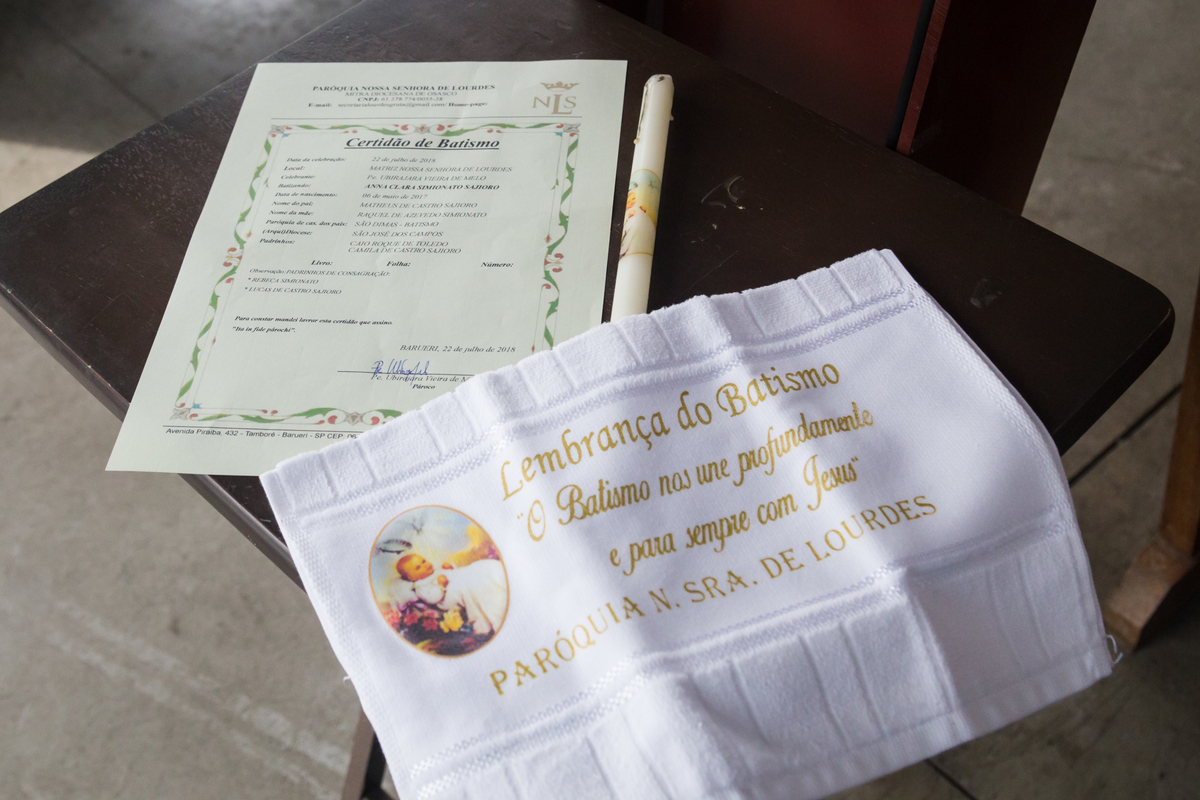 PARÓQUIA NOSSA SENHORA DE LOURDES
MITRA DIOCESANA DE OSASCO
CNPJ:
E-mail: Home-page:
NLS
Certidão de Batismo
Data da celebração: 22 de julho de 2018
Local: MATRIZ NOSSA SENHORA DE LOURDES
Celebrante: Pe. UBIRAJARA VIEIRA DE MELO
Batizando: ANNA CLARA SIMIONATO SAJIORO
Data de nascimento: 06 de maio de 2017
Nome do pai: MATHEUS DE CASTRO SAJIORO
Nome da mãe: RAQUEL DE AZEVEDO SIMIONATO
Paróquia de cas. dos pais: SÃO DIMAS - BATISMO
(Arqui)Diocese: SÃO JOSÉ DOS CAMPOS
Padrinhos: CAIO ROQUE DE TOLEDO
CAMILA DE CASTRO SAJIORO
Livro: Folha: Número:
Observação: PADRINHOS DE CONSAGRAÇÃO:
* REBECA SIMIONATO
* LUCAS DE CASTRO SAJIORO
Para constar mandei lavrar esta certidão que assino.
"Ita in fide párochi".
BARUERI, 22 de julho de 2018
Pe. Ubirajara Vieira de
Pároco
Avenida Piraíba, 432 - Tamboré - Barueri - SP CEP:
Lembrança do Batismo
"O Batismo nos une profundamente
e para sempre com Jesus"
PARÓQUIA N. SRA. DE LOURDES